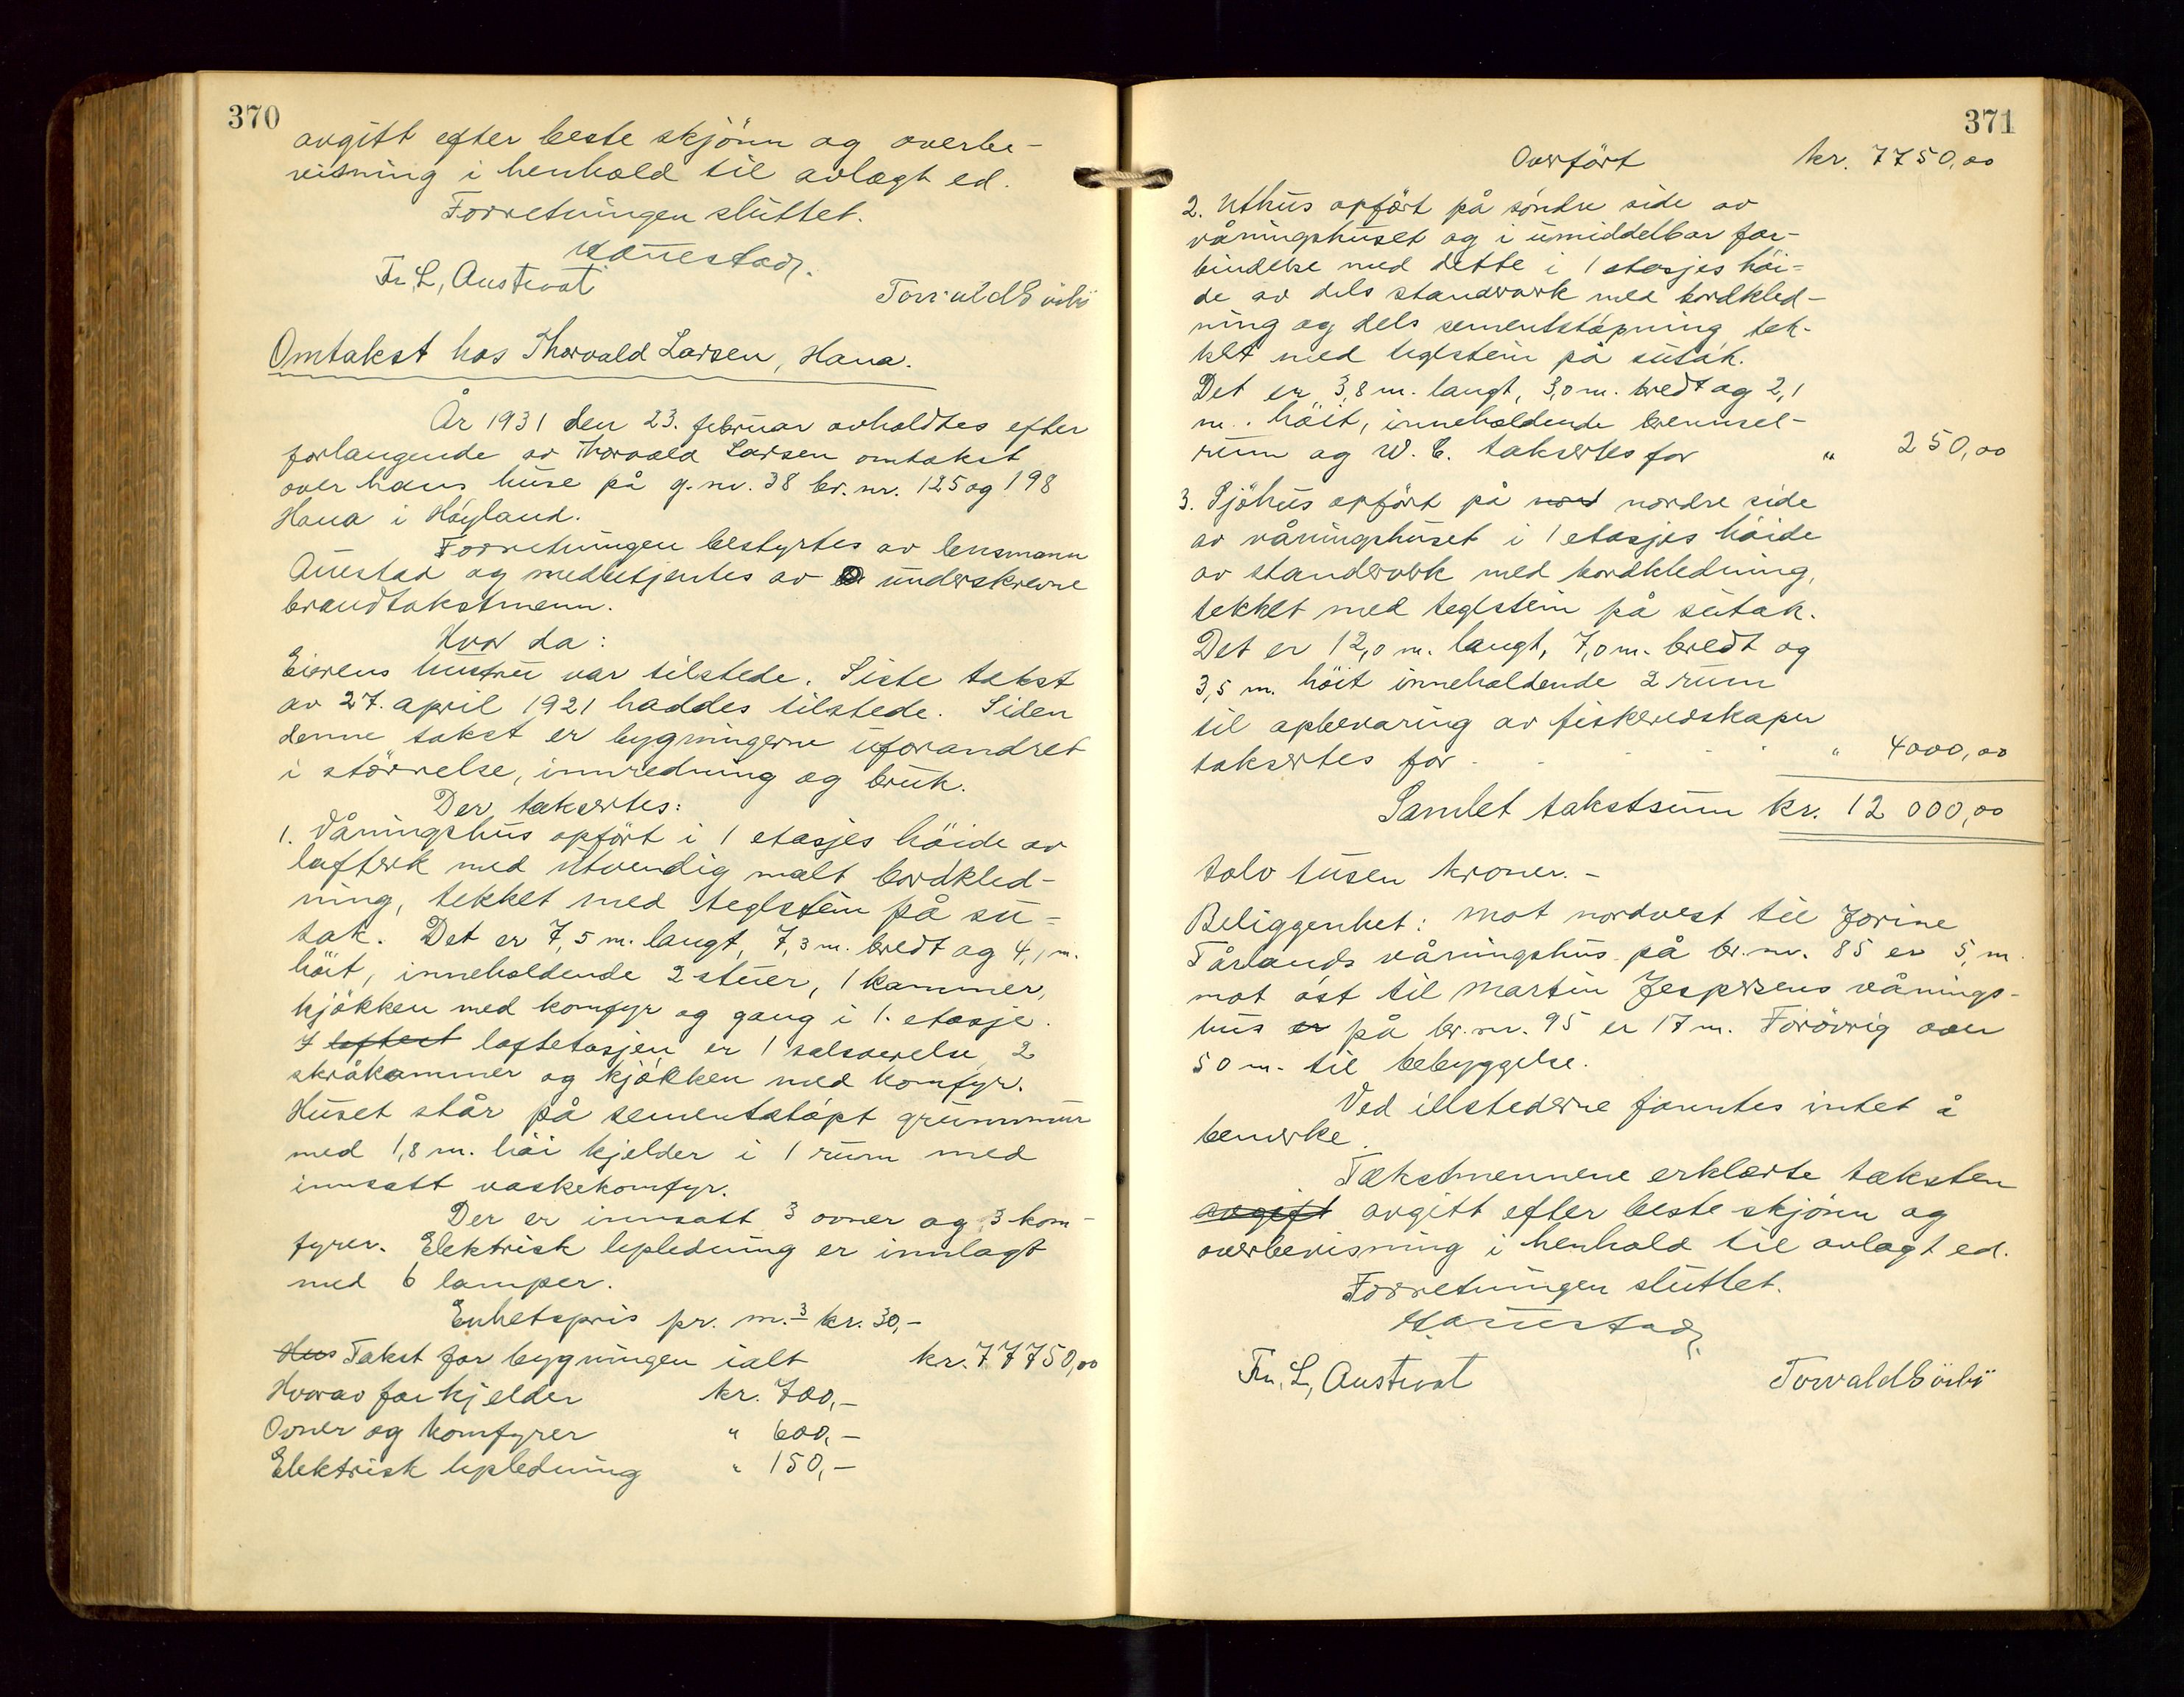 370
avgitt efter beste skjönn og overbe-
visning i henhold til avlagt ed.
Forretningen sluttet.
Fr. L. Austevot
Omtakst hos Thorvald Larsen, Hana.
År 1931 den 23. februar avholdtes efter
forlangende av Thorvald Larsen omtakst
over hans huse på g.nr. 38 br.nr. 125 og 198
Hana i Höyland.
Forretningen bestyrtes av lensmann
Auestad og medbetjentes av underskrevne
brandtakstmenn.
Hvor da:
Eierens hustru var tilstede. Siste takst
av 27. april 1921 haddes tilstede. Siden
denne takst er bygningerne uforandret
i störrelse, innredning og bruk.
Der taksertes:
1. Våningshus opfört i 1 etasjes höide av
lafterk med utvendig malt bordkled-
ning, tekket med teglstein på su-
tak. Det er 7,5 m. langt, 7,3 m. bredt og 4,1 m.
höit, inneholdende 2 stuer, 1 kammer,
kjökken med komfyr og gang i 1. etasje.
I loftert loftetasjen er 1 salsverelse, 2
skråkammer og kjökken med komfyr.
Huset står på sementstöpt grunnmur
med 1,8 m. höi kjelder i 1 rum med
innsatt vaskekomfyr.
Der er innsatt 3 ovner og 3 kom-
fyrer. Elektrisk lysledning er innlagt
med 6 lamper.
Enhetspris pr. m.3 kr. 30,-
Hus Takst for bygningen ialt kr. 77750,00
Hvorav for kjelder kr. 700,-
Ovner og komfyrer " 600,-
Elektrisk lysledning " 150,-
371
Overfört kr. 7750,00
2. Uthus opfört på söndre side av
våningshuset og i umiddelbar for-
bindelse med dette i 1 etasjes höi-
de av dels standverk med bordkled-
ning og dels sementstöpning tek-
ket med teglstein på sutak.
Det er 3,8 m. langt, 3,0 m. bredt og 2,1
m. höit, inneholdende brennsel-
rum og W.C. taksertes for " 250,00
3. Sjöhus opfört på nord nordre side
av våningshuset i 1 etasjes höide
av standverk med bordkledning,
tekket med teglstein på sutak.
Det er 12,0 m. langt, 7,0 m. bredt og
3,5 m. höit inneholdende 2 rum
til opbevaring av fiskeredskaper
taksertes for " 4000,00
Samlet takstsum kr. 12 000,00
tolv tusen kroner.-
Beliggenhet: mot nordvest til Jorine
Tårlands våningshus på br.nr. 85 er 5, m.
mot öst til Martin Jespersens vånings-
hus er på br.nr. 95 er 17 m. Forövrig over
50 m. til bebyggelse.
Ved illstederne fanntes intet å
bemerke.
Takstmennene erklærte taksten
avgift avgitt efter beste skjönn og
overbevisning i henhold til avlagt ed.
Forretningen sluttet.
Fr. L. Austevot